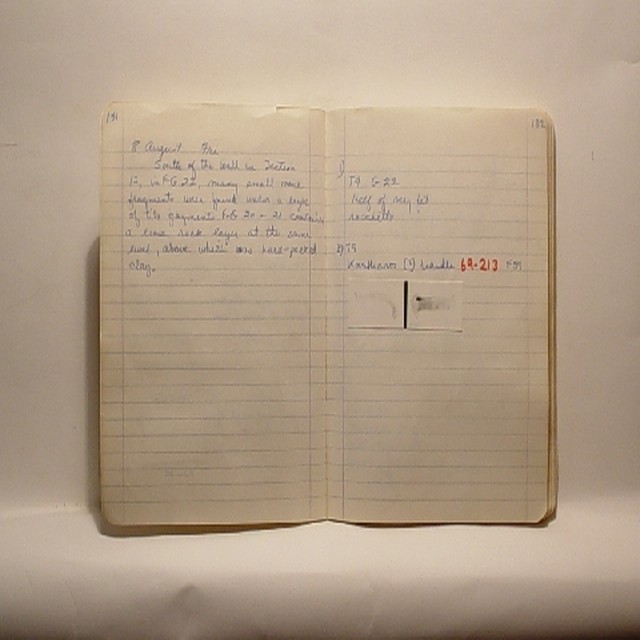 131
8 August Fri
South of the wall in Section
13, in FG 22, many small more
fragments were found under a layer
of tile fragments. FG 20-21 contains
a lime rock layer at the same
level, above which was hard-packed
clay.
132
1)
T4 G-22
Half of
2) T5
Kantharos (?) handle 69-213